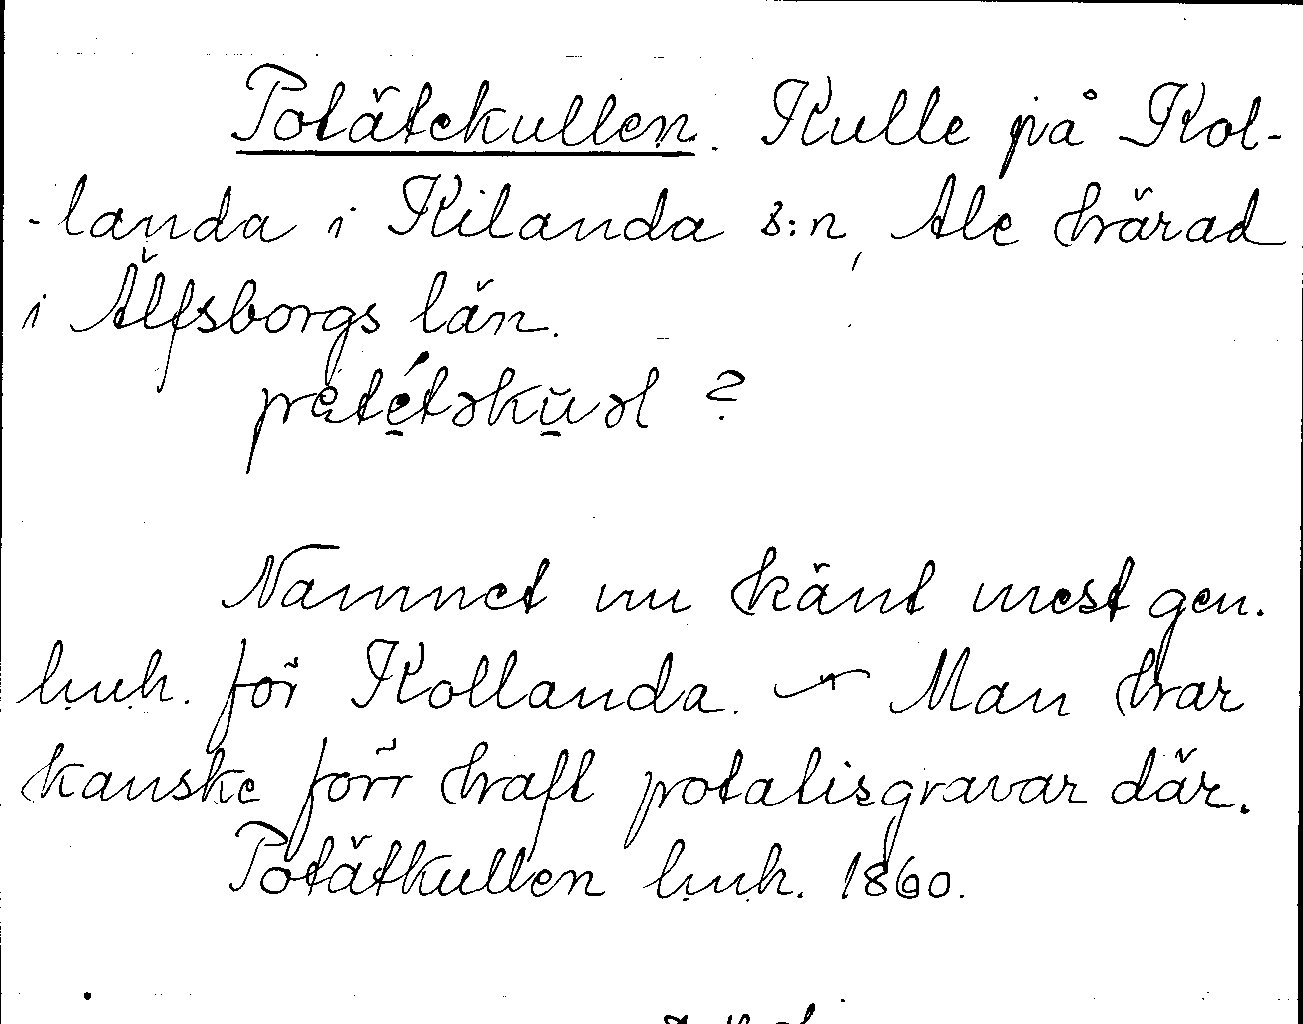 Potätekullen. Kulle på Kol-
-landa i Kilanda s:n, Ale härad
i Älfsborgs län.
petétəkuəl ?
Namnet nu känt mest gen.
huh. för Kollanda. – Man har
kanske förr haft potatisgravar där.
Potätkullen huh. 1860.